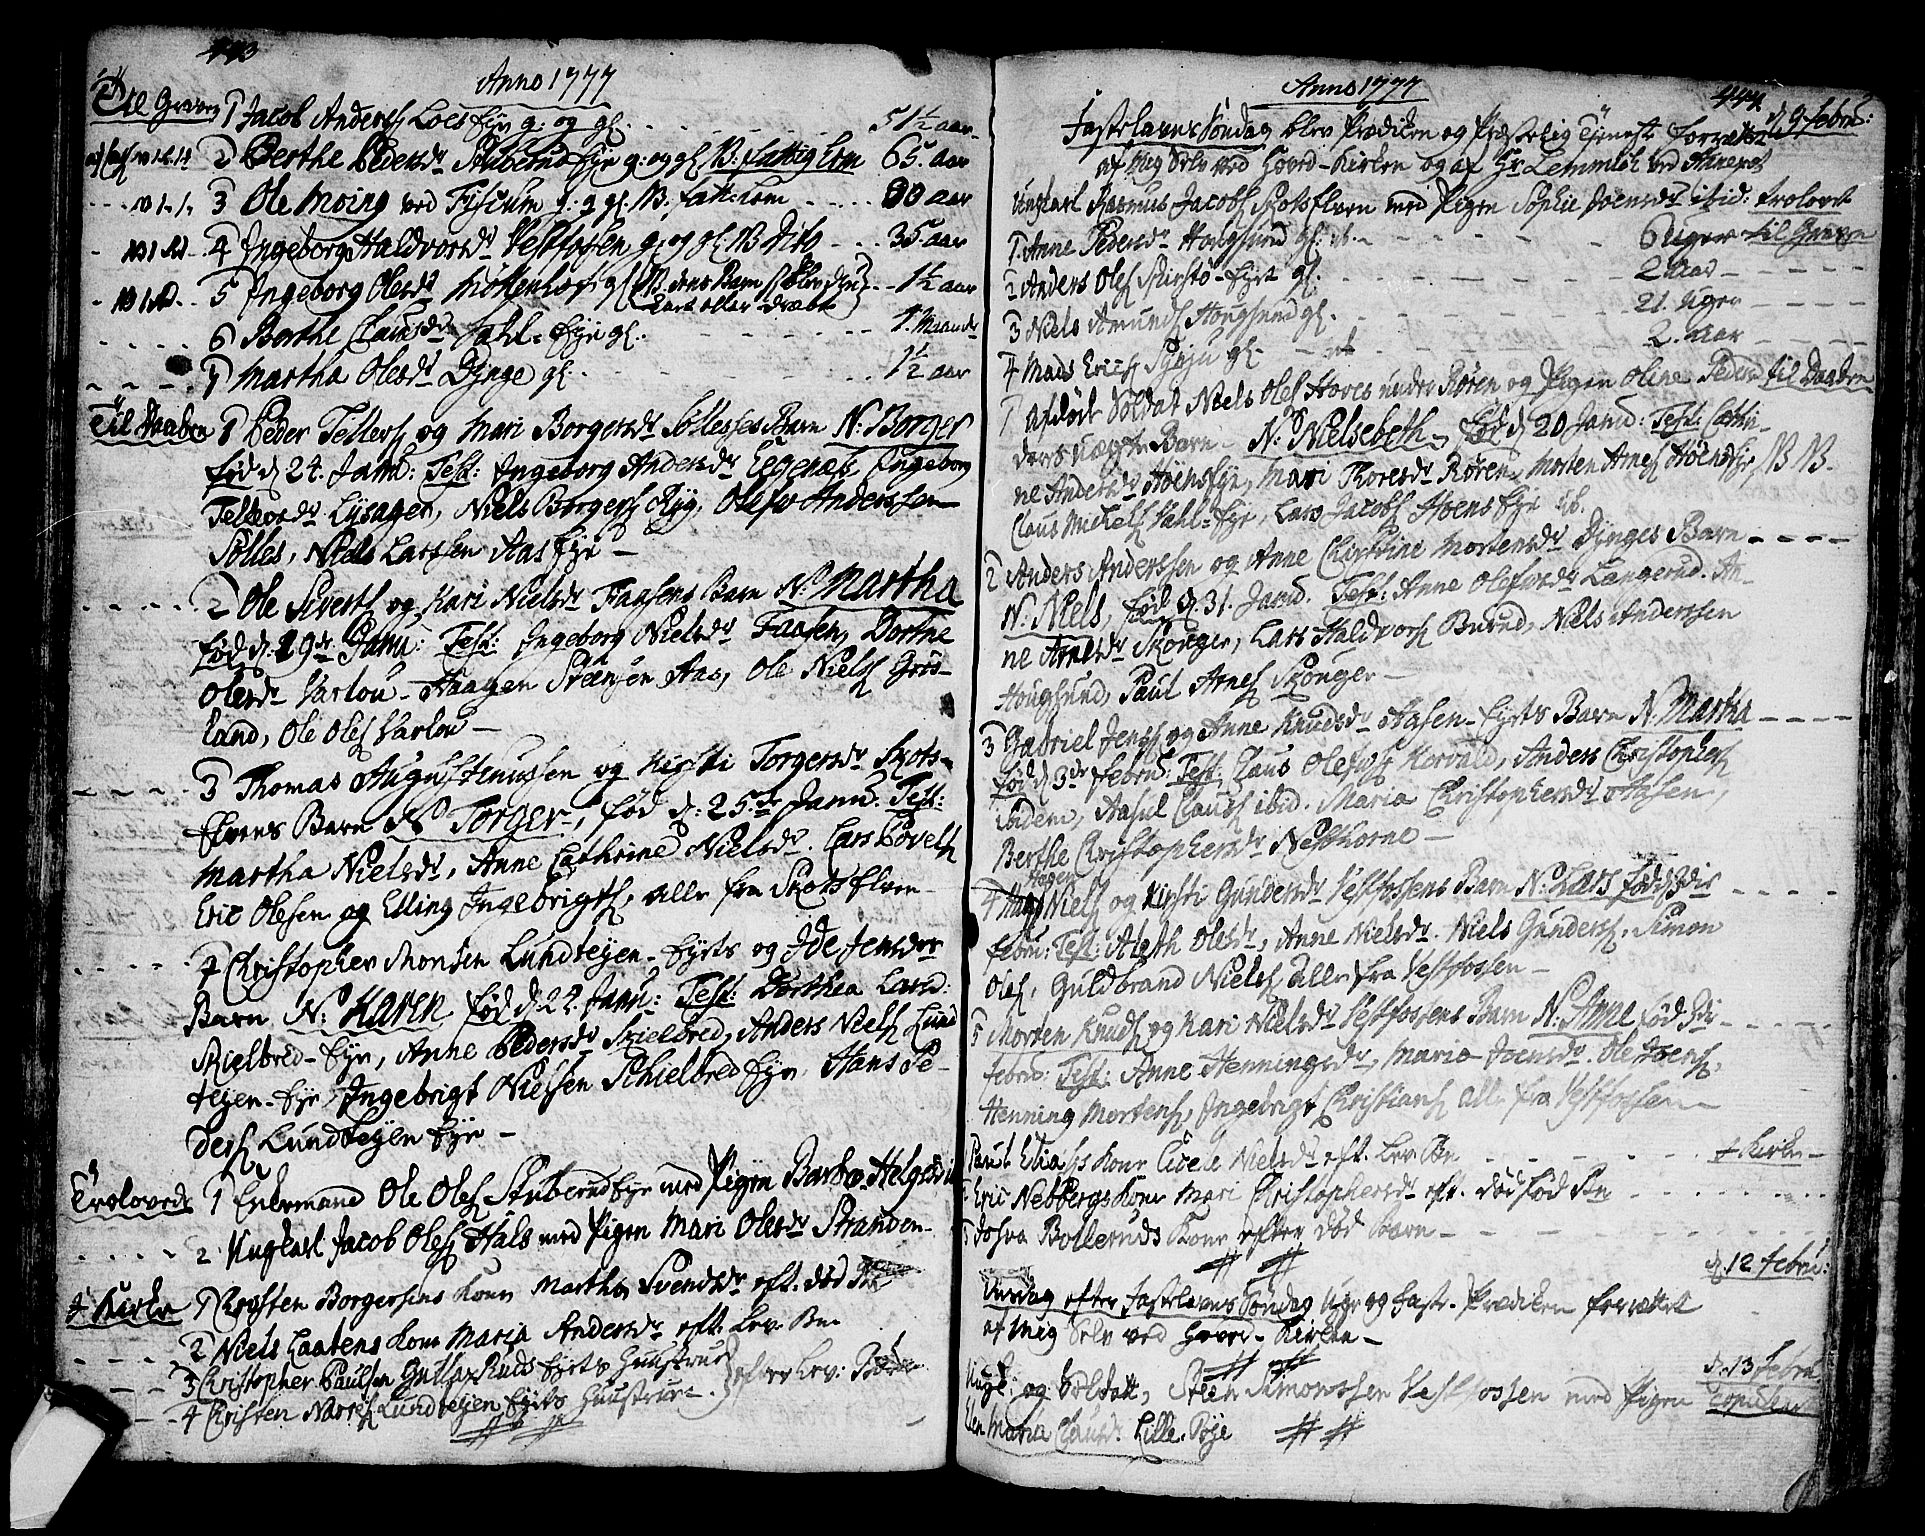 443
Anno 1777
Til Graven 1 Jacob Anders Loes Eye g: og gl. 5 1/2 aar
2 Berthe Peders dr Stubberud Eye g: og gl N: fattig Lem 65. aar
3 Ole Moing ved Fiscum g: g gl. N: fatt: Lem 80 aar
4 Ingeborg Haldvors dr Vestfossen g: og gl N Dito 35. aar
5 Ingeborg Oles dr 1 1/2 aar
6 Berthe Claus dr Dahl-Eye gl. 1. Maaned
7 Martha Oles dr Dynge gl. 1 1/2 aar
Til Daaben 1 Peder Tellefs og Mari Borgers dr Sølleses Barn N: Borger
fød d 24. Janu: Test: Ingeborg Anders dr Egenæs, Ingeborg
Tellevs dr Lysager, Niels Borgers Ryg, Olefw Anderssen
Sølles, Niels Larssen Aas Eye –
2 Ole Siverts og Kari Niels dr Faasens Barn N. Martha
fød d: 29de Janu: Test: Ingeborg Niels dr Faasen, Dorthe
Oles dr Varlou – Haagen Steensen Aas, Ole Niels Grøs-
land, Ole Oles Varlou –
3 Thomas Augustinussen og Kirsti Torgers dr Skots-
Elvens Barn N Torger, fød d: 25de Janu. Test:
Martha Niels dr, Anne Cathrine Niels dr. Lars
Eric Olesen og Elling Ingebrigts, alle fra Skots Elven –
4 Christopher Monsen Lundteyen-Eyets og Ide Jens dr
Barn N: Karen, fød d. 22. Janu: Test: Dorthea Lars d:
Skielbred-Eye, Anne Peders dr Skielbred, Anders Niels Lund
teyen-Eye, Ingebrigt Nielsen Schielbred Eye, Hans Pe-
ders Lundteyen Eye –
Trolovede 1 Enkemand Ole Oles Stubberud Eye med Pigen Barbro Helges dr
2. Ungkarl Jacob Oles Hals med Pigen Mari Oles dr Stranden –
I Kirke 1 Cresten Borgersens Kone Martha Svends dr eft. død
2 Niels Laatens Kone Maria Anders dr eft. Lev. Bn.
3 Christopher Paulsen Gullaxruds Eyets Huustrue
4 Christen Lundteyen Eyets Huustrue efter Lev: Børn
444
Anno 1777
d 9 Febru:
Fastelavns Søndag blev Prædiken og Præstelig Tieneste forrettet
af Mig Selv ved Hoved-Kirken og af Hr Lemmich ved Annexet
Ungkarl Rasmus Jacobs Skotselven med Pigen Sophie Joens dr ibid: trolovet
1. Anne Peders dr Hougsund gl. 6 Uger til Graven
2 Anders Oles Skirstø-Eyet gl. 2 Aar
3 Niels Amunds Hougsund gl. 21. Uger
4 Mads Erics gl. 2. Aar
1 Afdøde Soldat Niels Oles Hoves under Røren og Pigen Oline Peders til Daaben
ders uægte Barn – N. Nielsebeth, fød d 20 Janu: Test: Cathri-
ne Anders dr Hoens Eye, Mari Thores dr Røren, Morten Arnes Hoens Eye, NB.
Claus Michels Dahl-Eye, Lars Jacobs Hoens Eye
2 Anders Anderssen og Anne Christine Mortens dr Dynges Barn
N. Niels, fød d. 31. Janu. Test: Anne Olefws dr Langerud. An-
ne Arnes dr Skonger, Lars Haldvors Burud, Niels Anderssen
Hougsund, Paul Arnes Skonger –
3 Gabriel Jens og Anne Knuds dr Aasen-Eyets Barn N. Martha
fød d 3de Febru: Test: Claus Olefws Korvald, Anders Christophers
ibidem, Aasul Claus ibid. Maria Christophers dr Aasen,
Berthe Christophers dr Næsthorne –
4 Haagen Niels og Kirsti Gunders dr Vestfossens Barn N: Lars fød d 3die
Febru: Test: Aleth Oles dr, Anne Niels dr. Niels Gunders, Simon
Oles, Guldbrand Niels alle fra Vestfossen –
5 Morten Knuds og Kari Niels dr Vestfossens Barn N: Anne fød 3di
Febru: Test: Anne Hennings dr, Marie Joens dr. Ole Joens,
Henning Mortens, Ingebrigt Christians alle fra Vestfossen –
Paul Elias's Kone Niels dr eft. Lev: Bn I Kirke –
Eric Nebbergs Kone Mari Christophers dr eft. død fød Bn
Bollerud's Kone efter død Barn –
d. 12 Febru:
Onsdag efter Fastelavns Søndag Uge og Faste Prædiken forrettet
af Mig Selv ved Hoved-Kirken –
d. 13 Febru
Ungk: og Soldat, Steen Simonssen Vestfossen med Pigen Copuleret
Elen Maria Claus dr. Lille-Røye